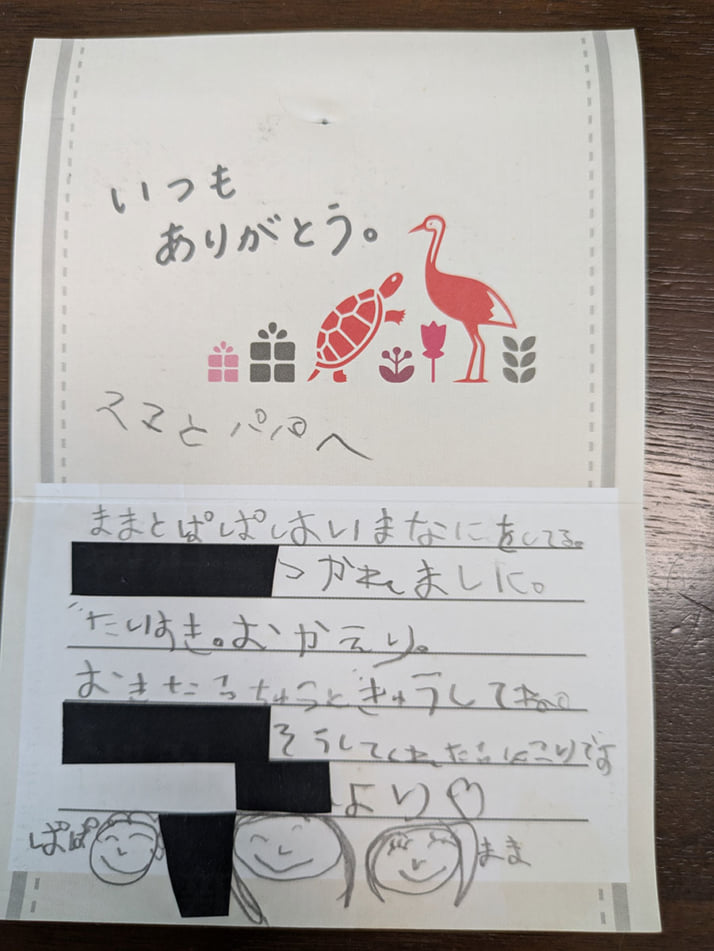 いつも
ありがとう。
ママとパパへ
ままとぱぱはいまなにをしてる。
つかれました。
だいすき。おかえり。
おきたらちゅうとぎゅうしてね。
そうしてくれたらにこりです
より♡
ぱぱ
まま